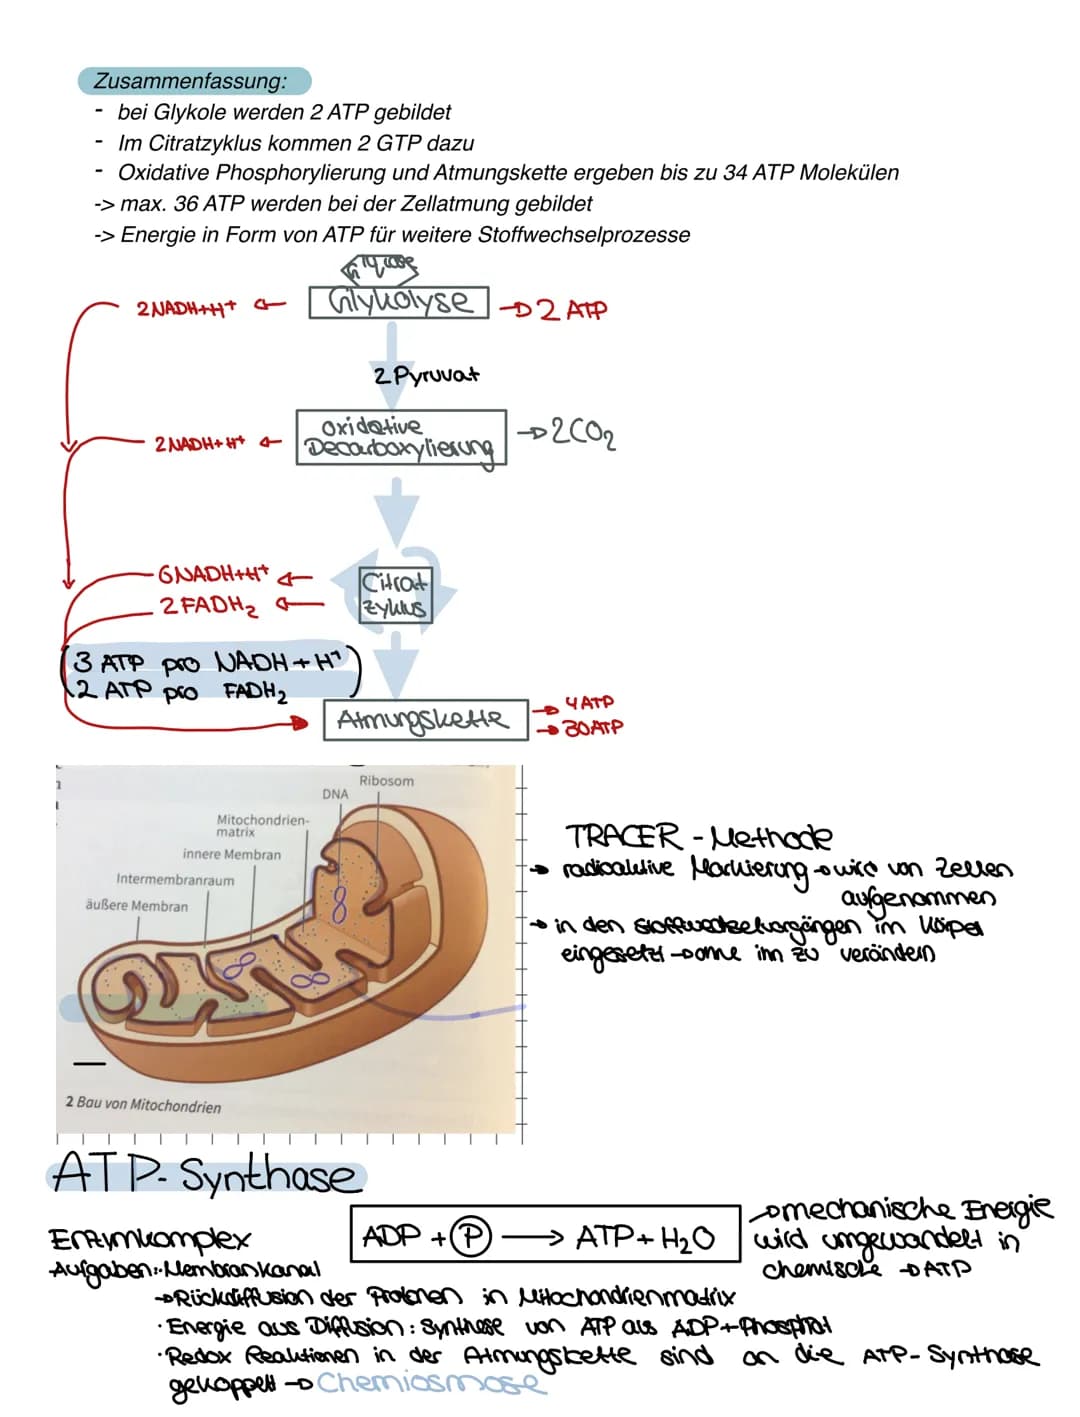 Zusammenfassung:
- bei Glykole werden 2 ATP gebildet
- Im Citratzyklus kommen 2 GTP dazu
- Oxidative Phosphorylierung und Atmungskette ergeben bis zu 34 ATP Molekülen
-> max. 36 ATP werden bei der Zellatmung gebildet
-> Energie in Form von ATP für weitere Stoffwechselprozesse
2NADH+H+
Glykolyse
2 ATP
2 Pyruvat
2NADH+H+
Oxidative
Decarboxylierung
2CO2
6NADH+H+
2 FADH2
Citrat
zyklus
3 ATP pro NADH+H+
2 ATP pro FADH2
Atmungskette
4 ATP
30 ATP
Ribosom
DNA
Mitochondrien-
matrix
innere Membran
Intermembranraum
äußere Membran
2 Bau von Mitochondrien
TRACER - Methode
radioaktive Markierung → wird von Zellen
aufgenommen
in den Stoffwechselvorgängen im Körper
eingesetzt → ohne ihn zu verändern
ATP-Synthase
Enzymkomplex
ADP + P → ATP + H2O
→ mechanische Energie
wird umgewandelt in
chemische → ATP
Aufgaben: · Membrankanal
→ Rückdiffusion der Protonen in Mitochondrienmatrix
· Energie aus Diffusion: Synthese von ATP aus ADP+Phosphat
· Redox Reaktionen in der Atmungskette sind an die ATP-Synthase
gekoppelt → Chemiosmose